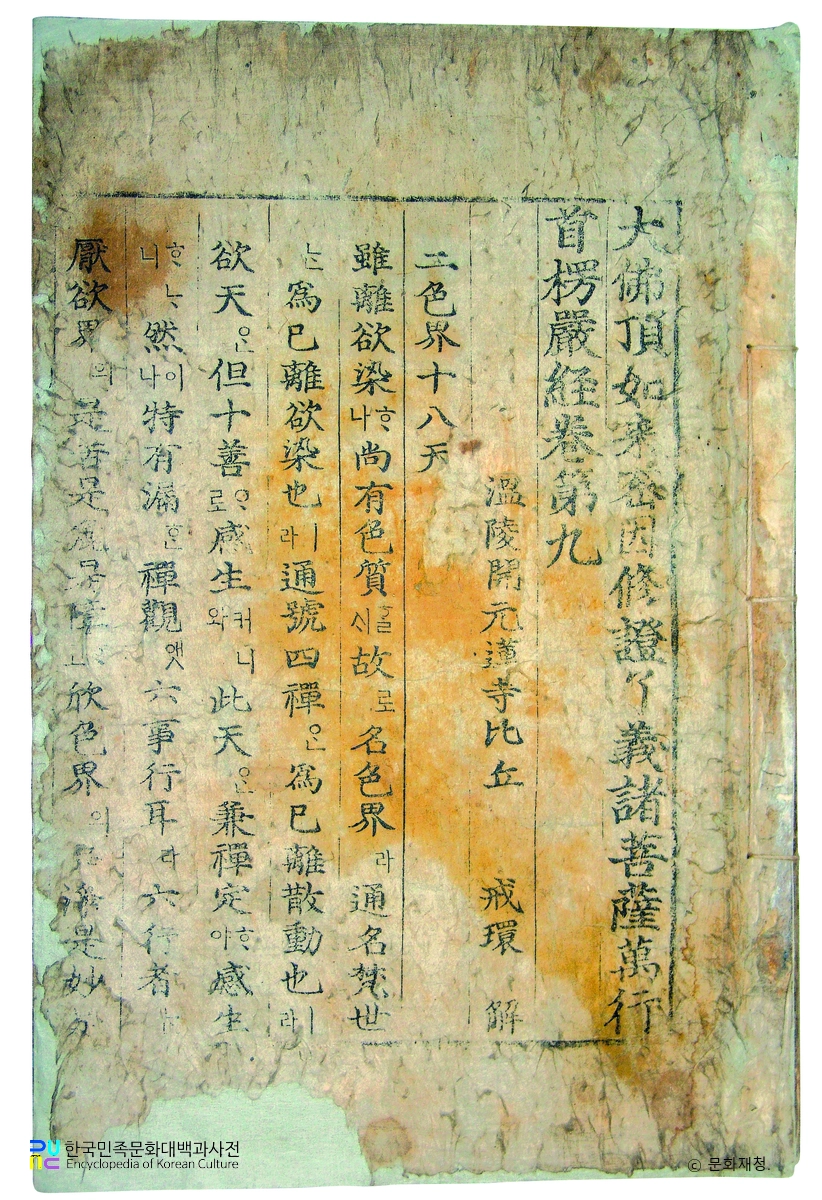 大佛頂如来密因修證了義諸菩薩萬行
首楞嚴経卷第九
溫陵開元蓮寺比丘 戒環 解
二色界十八天
雖離欲染ᄒᆞ나尚有色質ᄒᆞᆯ시故로名色界라通名梵世
ᄂᆞᆫ爲已離欲染也ㅣ라通號四禪ᄋᆞᆫ爲已離散動也ㅣ라
欲天ᄋᆞᆫ但十善ᄋᆞ로感生커니와此天ᄋᆞᆫ兼禪定ᄒᆞ야感生
ᄒᆞᄂᆞ니然이나特有漏ᄒᆞᆫ禪觀앳六事行耳라六行者
厭欲界의是苦是麁是障欣色界의淨是妙
한국민족문화대백과사전
Encyclopedia of Korean Culture
ⓒ 문화재청